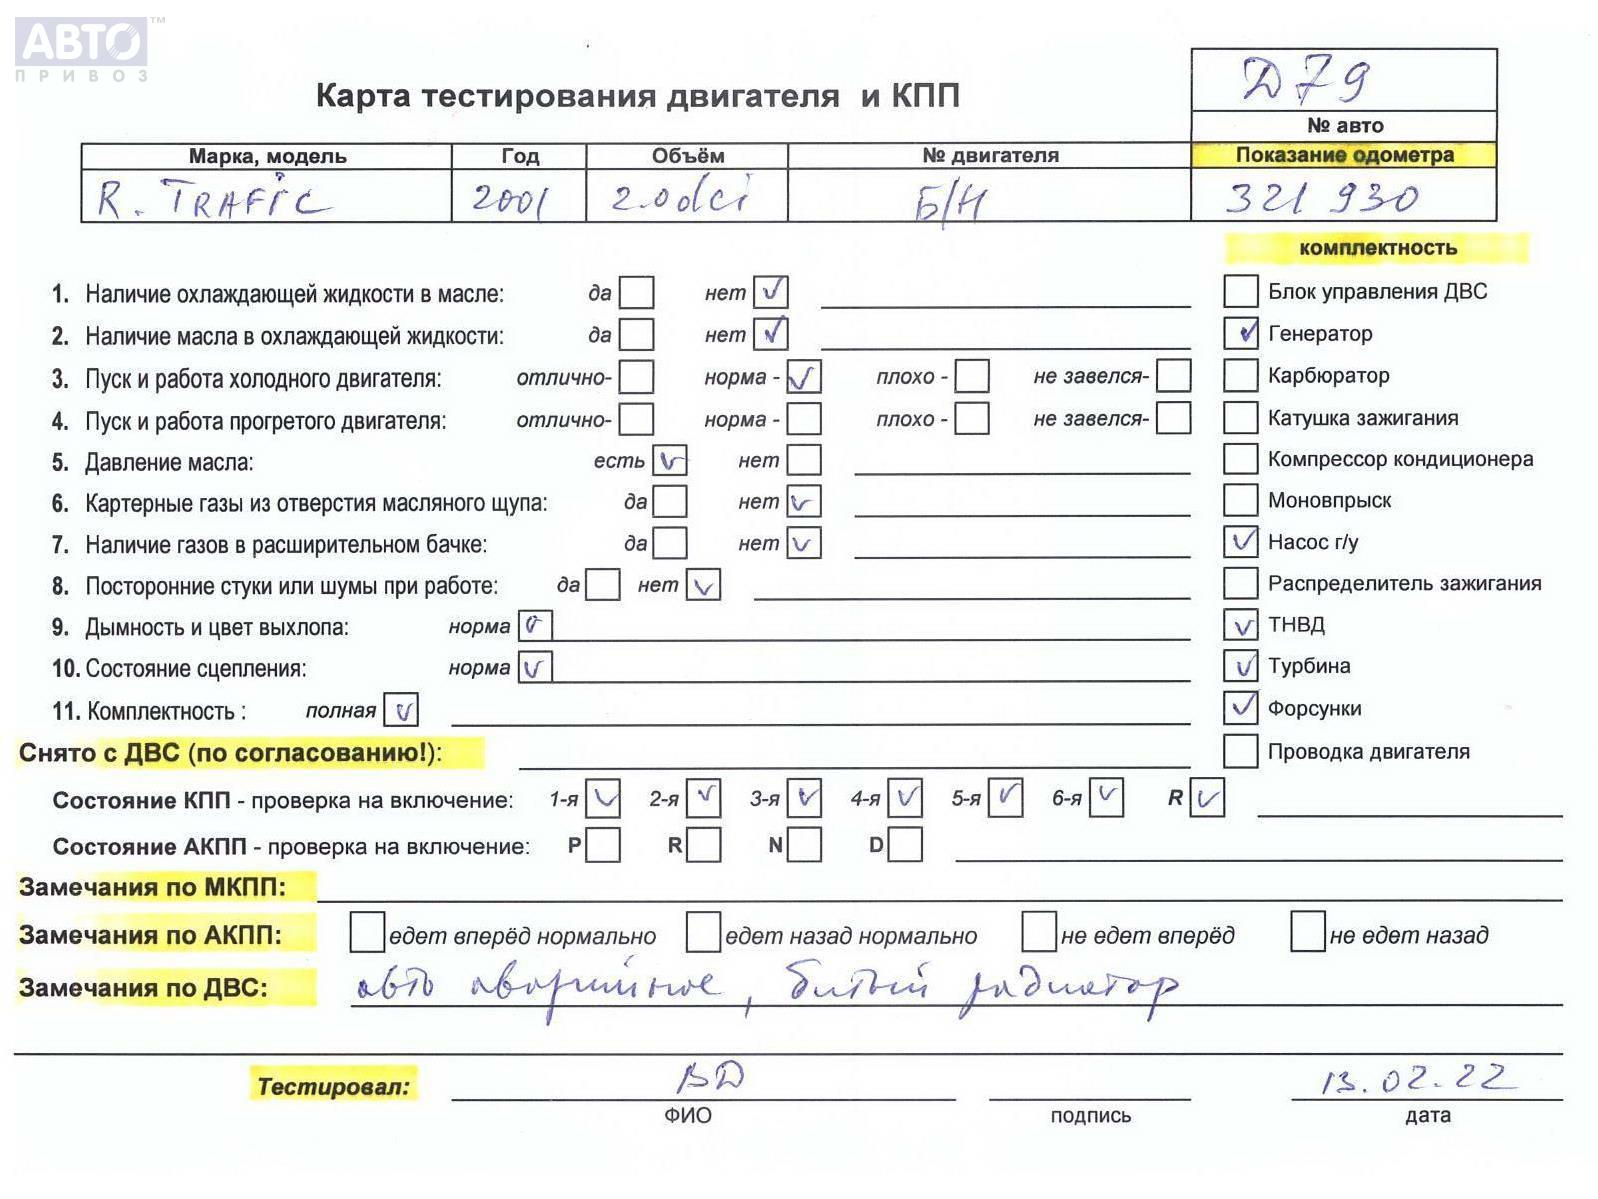 АВТО™
ПРИВОЗ
Карта тестирования двигателя и КПП
Д79
№ авто
Марка, модель Год Объём № двигателя Показание одометра
R. TRAFIC 2001 2.0dci Б/Н 321 930
комплектность
1. Наличие охлаждающей жидкости в масле: да нет ✓
Блок управления ДВС
2. Наличие масла в охлаждающей жидкости: да нет ✓
✓ Генератор
3. Пуск и работа холодного двигателя: отлично- норма - ✓ плохо - не завелся-
Карбюратор
4. Пуск и работа прогретого двигателя: отлично- норма - плохо - не завелся-
Катушка зажигания
5. Давление масла: есть ✓ нет
Компрессор кондиционера
6. Картерные газы из отверстия масляного щупа: да нет ✓
Моновпрыск
7. Наличие газов в расширительном бачке: да нет ✓
✓ Насос г/у
8. Посторонние стуки или шумы при работе: да нет ✓
Распределитель зажигания
9. Дымность и цвет выхлопа: норма ✓
✓ ТНВД
10. Состояние сцепления: норма ✓
✓ Турбина
11. Комплектность : полная ✓
✓ Форсунки
Снято с ДВС (по согласованию!):
Проводка двигателя
Состояние КПП - проверка на включение: 1-я ✓ 2-я ✓ 3-я ✓ 4-я ✓ 5-я ✓ 6-я ✓ R ✓
Состояние АКПП - проверка на включение: P R N D
Замечания по МКПП:
Замечания по АКПП: едет вперёд нормально едет назад нормально не едет вперёд не едет назад
Замечания по ДВС: авто аварийное, битый радиатор
Тестировал: ВД 13.02.22
ФИО подпись дата